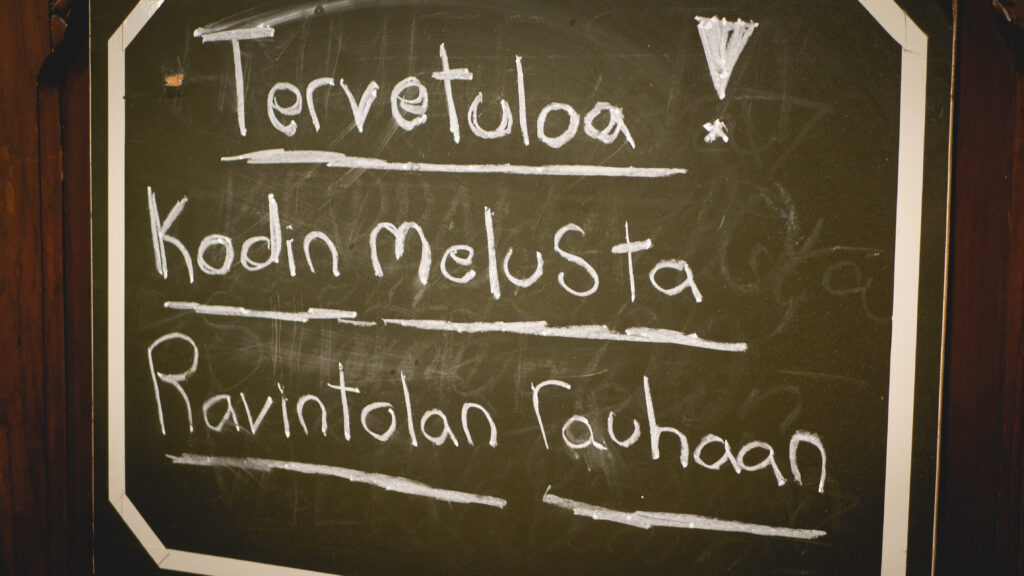 Tervetuloa !
Kodin melusta
Ravintolan rauhaan